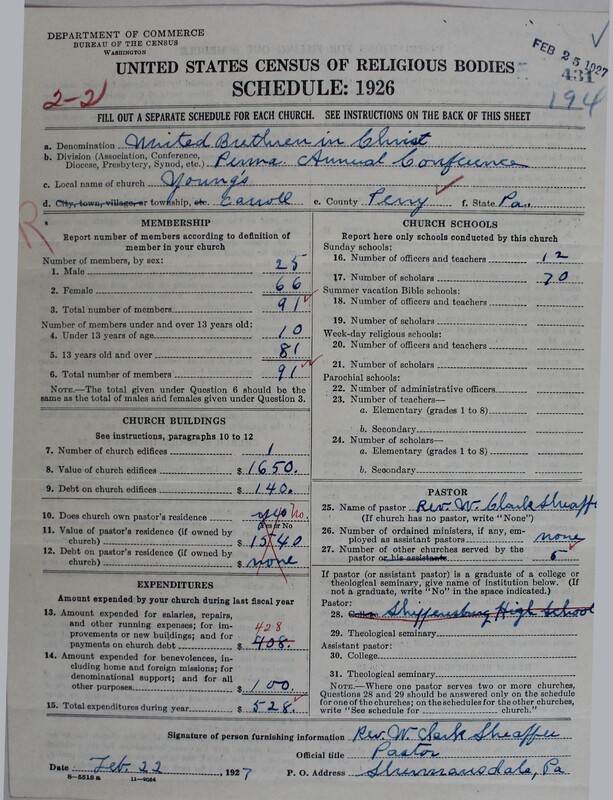 DEPARTMENT OF COMMERCE
BUREAU OF THE CENSUS
WASHINGTON
FEB 25 1927
431
194
UNITED STATES CENSUS OF RELIGIOUS BODIES
SCHEDULE: 1926
2-2
FILL OUT A SEPARATE SCHEDULE FOR EACH CHURCH. SEE INSTRUCTIONS ON THE BACK OF THIS SHEET
a. Denomination United Brethren in Christ
b. Division (Association, Conference, Diocese, Presbytery, Synod, etc.) Penna. Annual Conference
c. Local name of church Young's
d. City, town, village, or township, etc. Carroll e. County Perry f. State Pa.
R
MEMBERSHIP
Report number of members according to definition of member in your church
Number of members, by sex:
1. Male 25
2. Female 66
3. Total number of members 91
Number of members under and over 13 years old:
4. Under 13 years of age 10
5. 13 years old and over 81
6. Total number of members 91
NOTE.—The total given under Question 6 should be the same as the total of males and females given under Question 3.
CHURCH BUILDINGS
See instructions, paragraphs 10 to 12
7. Number of church edifices 1
8. Value of church edifices $ 1650.
9. Debt on church edifices $ 140.
10. Does church own pastor's residence yes no.
Yes or No
11. Value of pastor's residence (if owned by church) $ 1540
12. Debt on pastor's residence (if owned by church) $ none
EXPENDITURES
Amount expended by your church during last fiscal year
13. Amount expended for salaries, repairs, and other running expenses; for improvements or new buildings; and for payments on church debt $ 408. 428
14. Amount expended for benevolences, including home and foreign missions; for denominational support; and for all other purposes $ 100.
15. Total expenditures during year $ 528.
CHURCH SCHOOLS
Report here only schools conducted by this church
Sunday schools:
16. Number of officers and teachers 12
17. Number of scholars 70
Summer vacation Bible schools:
18. Number of officers and teachers
19. Number of scholars
Week-day religious schools:
20. Number of officers and teachers
21. Number of scholars
Parochial schools:
22. Number of administrative officers
23. Number of teachers—
a. Elementary (grades 1 to 8)
b. Secondary
24. Number of scholars—
a. Elementary (grades 1 to 8)
b. Secondary
PASTOR
25. Name of pastor Rev. W. Clark Sheaffe
(If church has no pastor, write "None")
26. Number of ordained ministers, if any, employed as assistant pastors none
27. Number of other churches served by the pastor or his assistant 5
If pastor (or assistant pastor) is a graduate of a college or theological seminary, give name of institution below. (If not a graduate, write "No" in the space indicated.)
Pastor:
28. College Shippensburg High School
29. Theological seminary
Assistant pastor:
30. College
31. Theological seminary
NOTE.—Where one pastor serves two or more churches, Questions 28 and 29 should be answered only on the schedule for one of the churches; on the schedules for the other churches, write "See schedule for church."
Signature of person furnishing information Rev. W. Clark Sheaffer
Official title Pastor
Date Feb. 22, 1927 P. O. Address Shermansdale, Pa
8-5518 a 11-9064